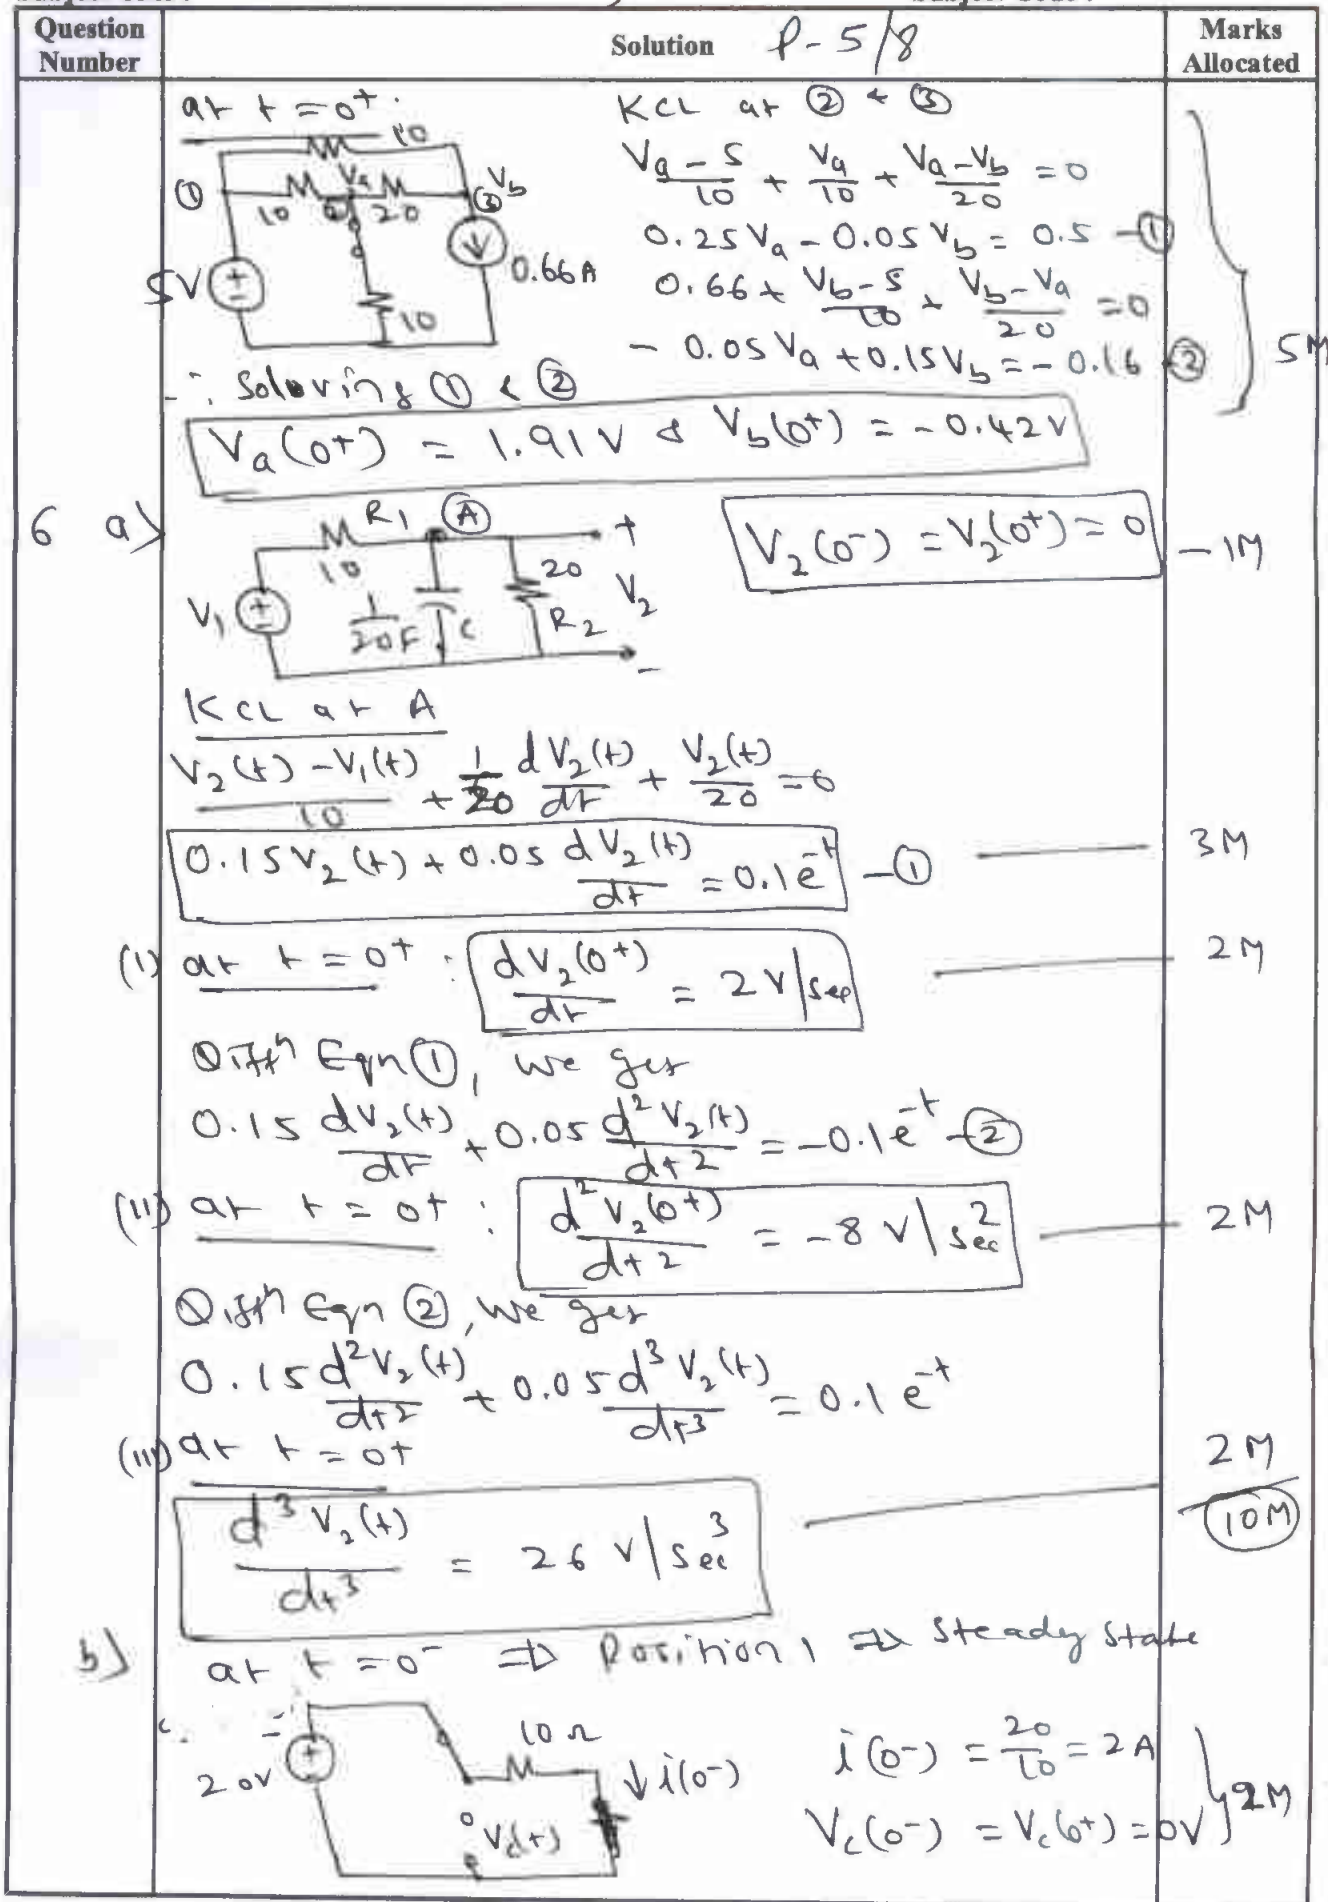 Question Number
Solution P-5/8
Marks Allocated
at t=0+.
10
① 10 Va ② 20 ③ Vb
5V
0.66A
10
KCL at ② & ③
(Va-5)/10 + Va/10 + (Va-Vb)/20 = 0
0.25Va - 0.05Vb = 0.5 -①
0.66 + (Vb-5)/10 + (Vb-Va)/20 = 0
- 0.05Va + 0.15Vb = -0.16 ②
5M
∴ Solving ① & ②
Va(0+) = 1.91V & Vb(0+) = -0.42V
6 a)
R1 Ⓐ
10
V1
1/20F
C
20
R2
+
V2
-
V2(0-) = V2(0+) = 0
-1M
KCL at A
(V2(t)-V1(t))/10 + 1/20 dV2(t)/dt + V2(t)/20 = 0
0.15V2(t) + 0.05 dV2(t)/dt = 0.1e^-t -①
3M
(i) at t=0+ : dV2(0+)/dt = 2V/sec
2M
Diffn Eqn①, we get
0.15 dV2(t)/dt + 0.05 d²V2(t)/dt2 = -0.1e^-t -②
(ii) at t=0+ : d²V2(0+)/dt2 = -8 V/sec²
2M
Diffn Eqn ②, we get
0.15 d²V2(t)/dt2 + 0.05 d³V2(t)/dt3 = 0.1 e^-t
(iii) at t=0+
2M
10M
d³V2(t)/dt3 = 26 V/Sec³
b) at t=0- ⇒ Position 1 ⇒ Steady State
20V
10Ω
↓i(0-)
Vc(t)
i(0-) = 20/10 = 2A
Vc(0-) = Vc(0+) = 0V
2M